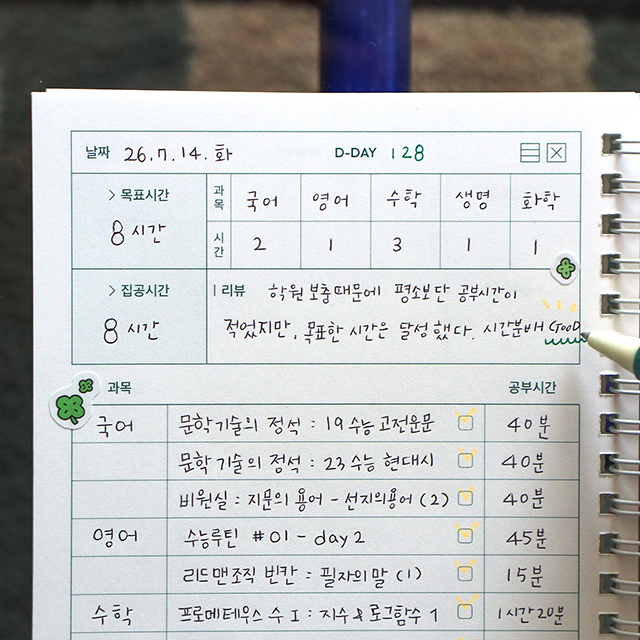 날짜 26.7.14.화 D-DAY 128
> 목표시간 과목 국어 영어 수학 생명 화학
8시간 시간 2 1 3 1 1
> 집공시간 | 리뷰 학원 보충 때문에 평소보단 공부시간이
8시간 적었지만, 목표한 시간은 달성했다. 시간분배 GOOD
과목 공부시간
국어 문학기술의 정석 : 19수능 고전운문 40분
문학기술의 정석 : 23수능 현대시 40분
비원실 : 지문의 용어 - 선지의용어 (2) 40분
영어 수능루틴 #01 - day 2 45분
리드맨조직 빈칸 : 필자의 말 (1) 15분
수학 프로메테우스 수 I : 지수 & 로그함수 1 1시간 20분